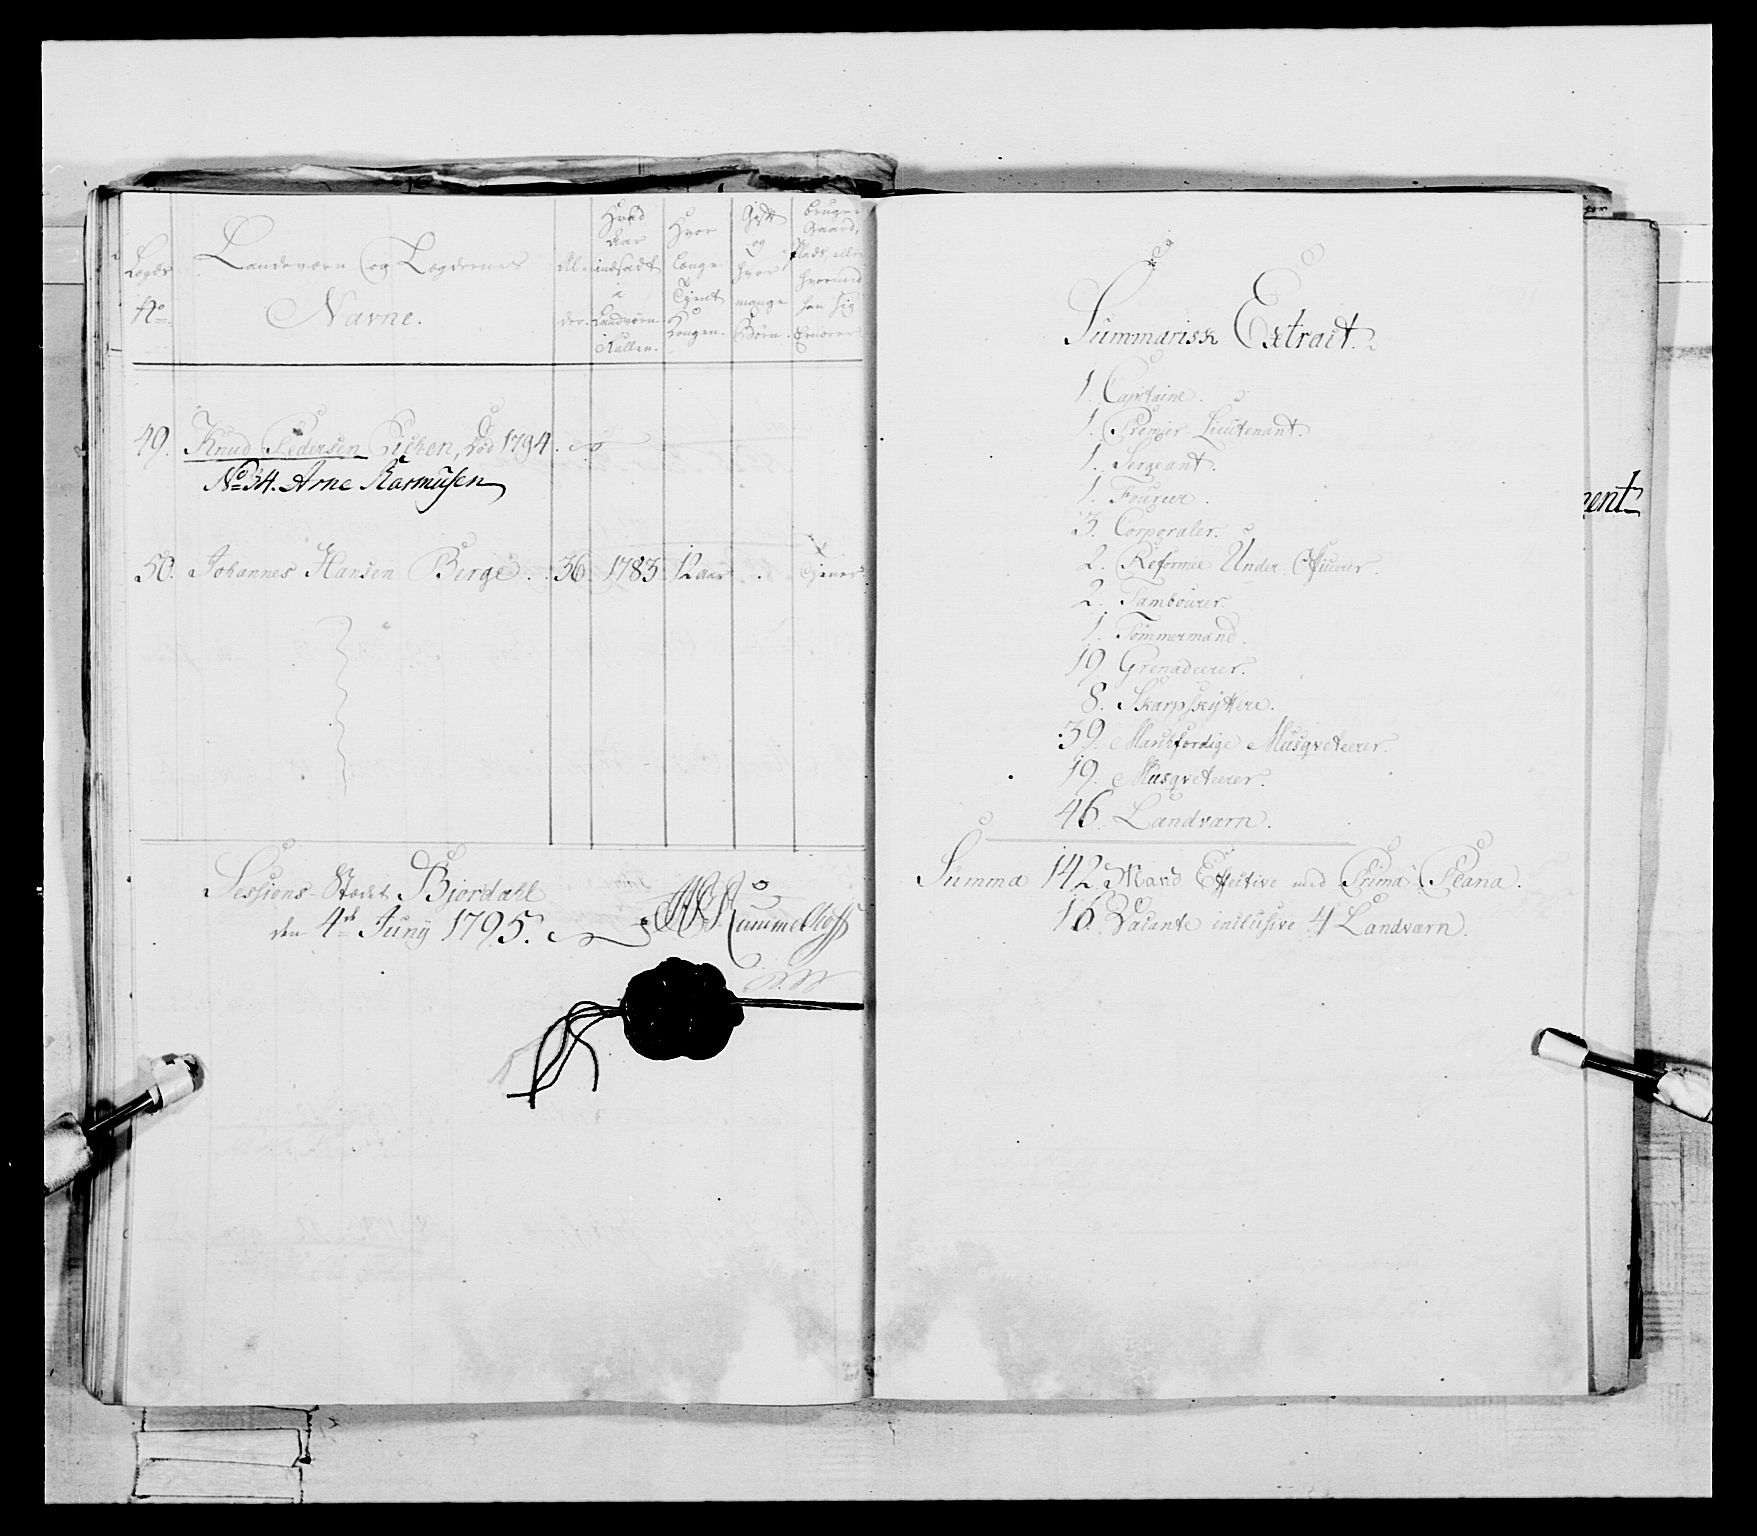 Lægds
No
Landeværn og Lægdernes
Navne.
Al-
der.
Hvad
Aar
indsadt
i
Landværn
Rullen.
Hvor
Længe
Tjent
Kongen.
Gift
og
hvor
mange
Børn.
Bruger
Gaard,
Plads, eller
hvormed
han sig
Ernærer.
49. Knud Pedersen, død 1794.
No 34. Arne Rasmusen
50. Johannes Hansen Berge. 36. 1783. 12 aar. Tjener
Sessions-Stædet Bjordahl
den 4de Juny 1795.
Summarisk Extract.
1. Capitaine.
1. Premier Lieutenant.
1. Sergeant.
1. Fourier.
3. Corporaler.
2. Reformee Under Officerer.
2. Tambourer.
1. Tømmermand.
19. Grenadeerer.
8. Skarpskyttere.
39. Marschfærdige Musqveteerer.
19. Musqveteerer.
46. Landværn.
Summa 142. Mand Effective med Prima Plana.
16. Vacante inclusive 4 Landværn.